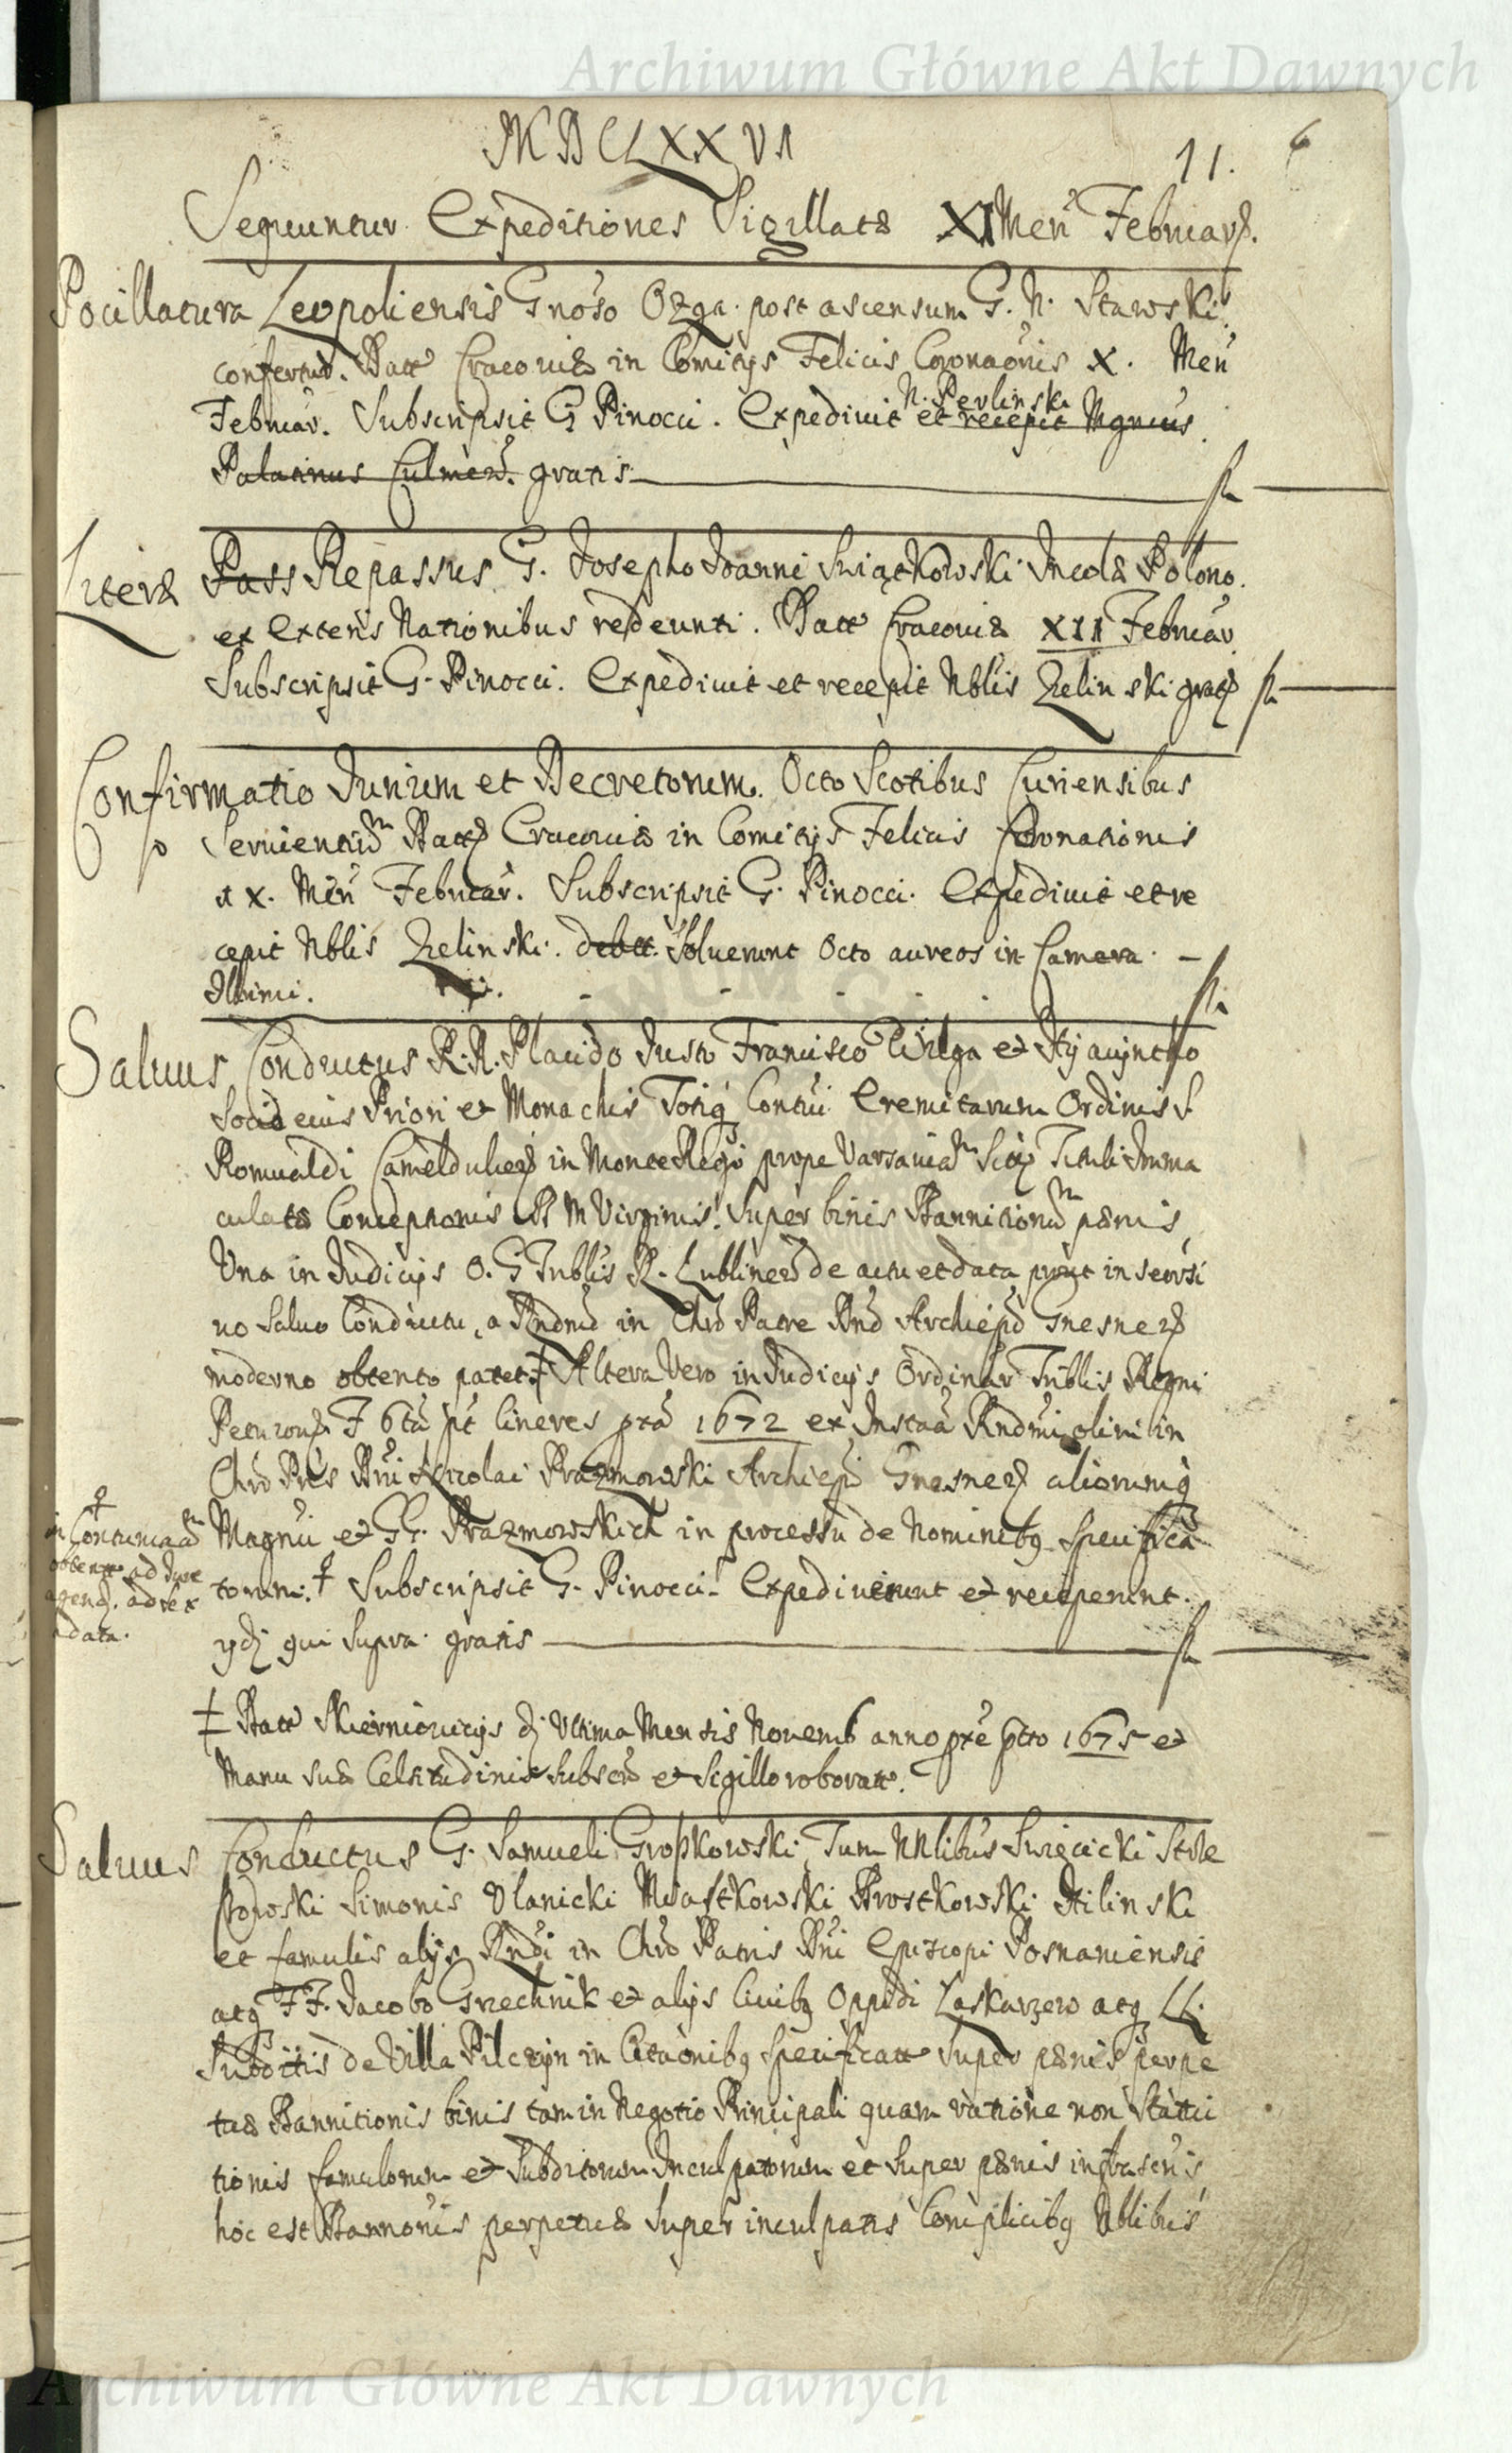 Archiwum Główne Akt Dawnych
MDCLXXVI
11. 6
Sequuntur Expeditiones Sigillatæ XI Men Februarẏ.
Pocillatura Leopoliensis Gnoso Ozga post ascensum G. N. Stawski
confertur. Datt Cracoviæ in Comitijs Felicis Coronaonis X. Men
Februar. Subscripsit G Pinocci. Expedivit et recepit Mgnius
N. Perlinski
Palatinus Culmen. gratis
Literæ Pass Repassus G. Josepho Joanni Swiątkowski Incolæ Polono
ex Exteris Nationibus redeunti. Datt Cracoviæ XII Februar
Subscripsit G. Pinocci. Expedivit et recepit Nblis Zielinski grat
Confirmatio Jurium et Decretorum Octo Scotibus Curiensibus
Servientium Datt Cracoviæ in Comitijs Felicis Coronationis
X. Men Februar. Subscripsit G. Pinocci. Expedivit et re
cepit Nblis Zielinski. debtt. Solverunt Octo aureos in Camera
Illmi.
Salvus Conductus R.R. Placido Justo Francisco et
Socio eius Priori et Monachis Totiq Contui Eremitarum Ordinis S.
Romualdi Camelduleñ in Monte Regio prope Varsaviam Tituli Imma
culatæ Conceptionis B M Virginis. Super binis Bannitionum pænis
Una in Judicijs O. G Trublis R. Lublinen de actu et data prout in
no Salvo Conductu, a Rndmo in Chro Patre Dno Archiepo Gnesneñ
moderno obtento patet ‡ Altera Vero in Judicijs Ordinar Trublis Regni
1672 ex Instaa Rndmi olim in
Chro Pris Dni Nicolai Prazmowski Archiepi Gnesneñ aliorumq
Magnii et GG. Prazmowskich in processu de Nominibq specifica
torum. Subscripsit G. Pinocci. Expediverunt et receperunt
qui supra gratis
in Contumaciam
obtent ad Jure
agend. ad
data.
‡ Datt Skierniovicijs d. Ultima Mensis Novemb anno 1675 et
Manu suæ Celsitudinis subscr et Sigillo roboratt.
Salvus Conductus G. Samueli Gropkowski, Tum NNlibus Swięcicki
Simonis Ulanicki Miastkowski Brostkowski Hilinski
et famulis alijs Rndi in Chro Patris Dni Episcopi Posnaniensis
acq FF. Jacobo Grzechnik et alijs Civibq Oppidi Laskarzew acq LL.
Subditis de Villa Pilczyn in Citaonibq specificatt super pænis perpe
tuæ Bannitionis binis tam in Negotio Principali quam ratione non Statui
tionis famulorum et Subditorum Inculpatorum et super pænis infrascris
hoc est Bannonis perpetuæ super inculpatis Complicibq Nblibus
Archiwum Główne Akt Dawnych